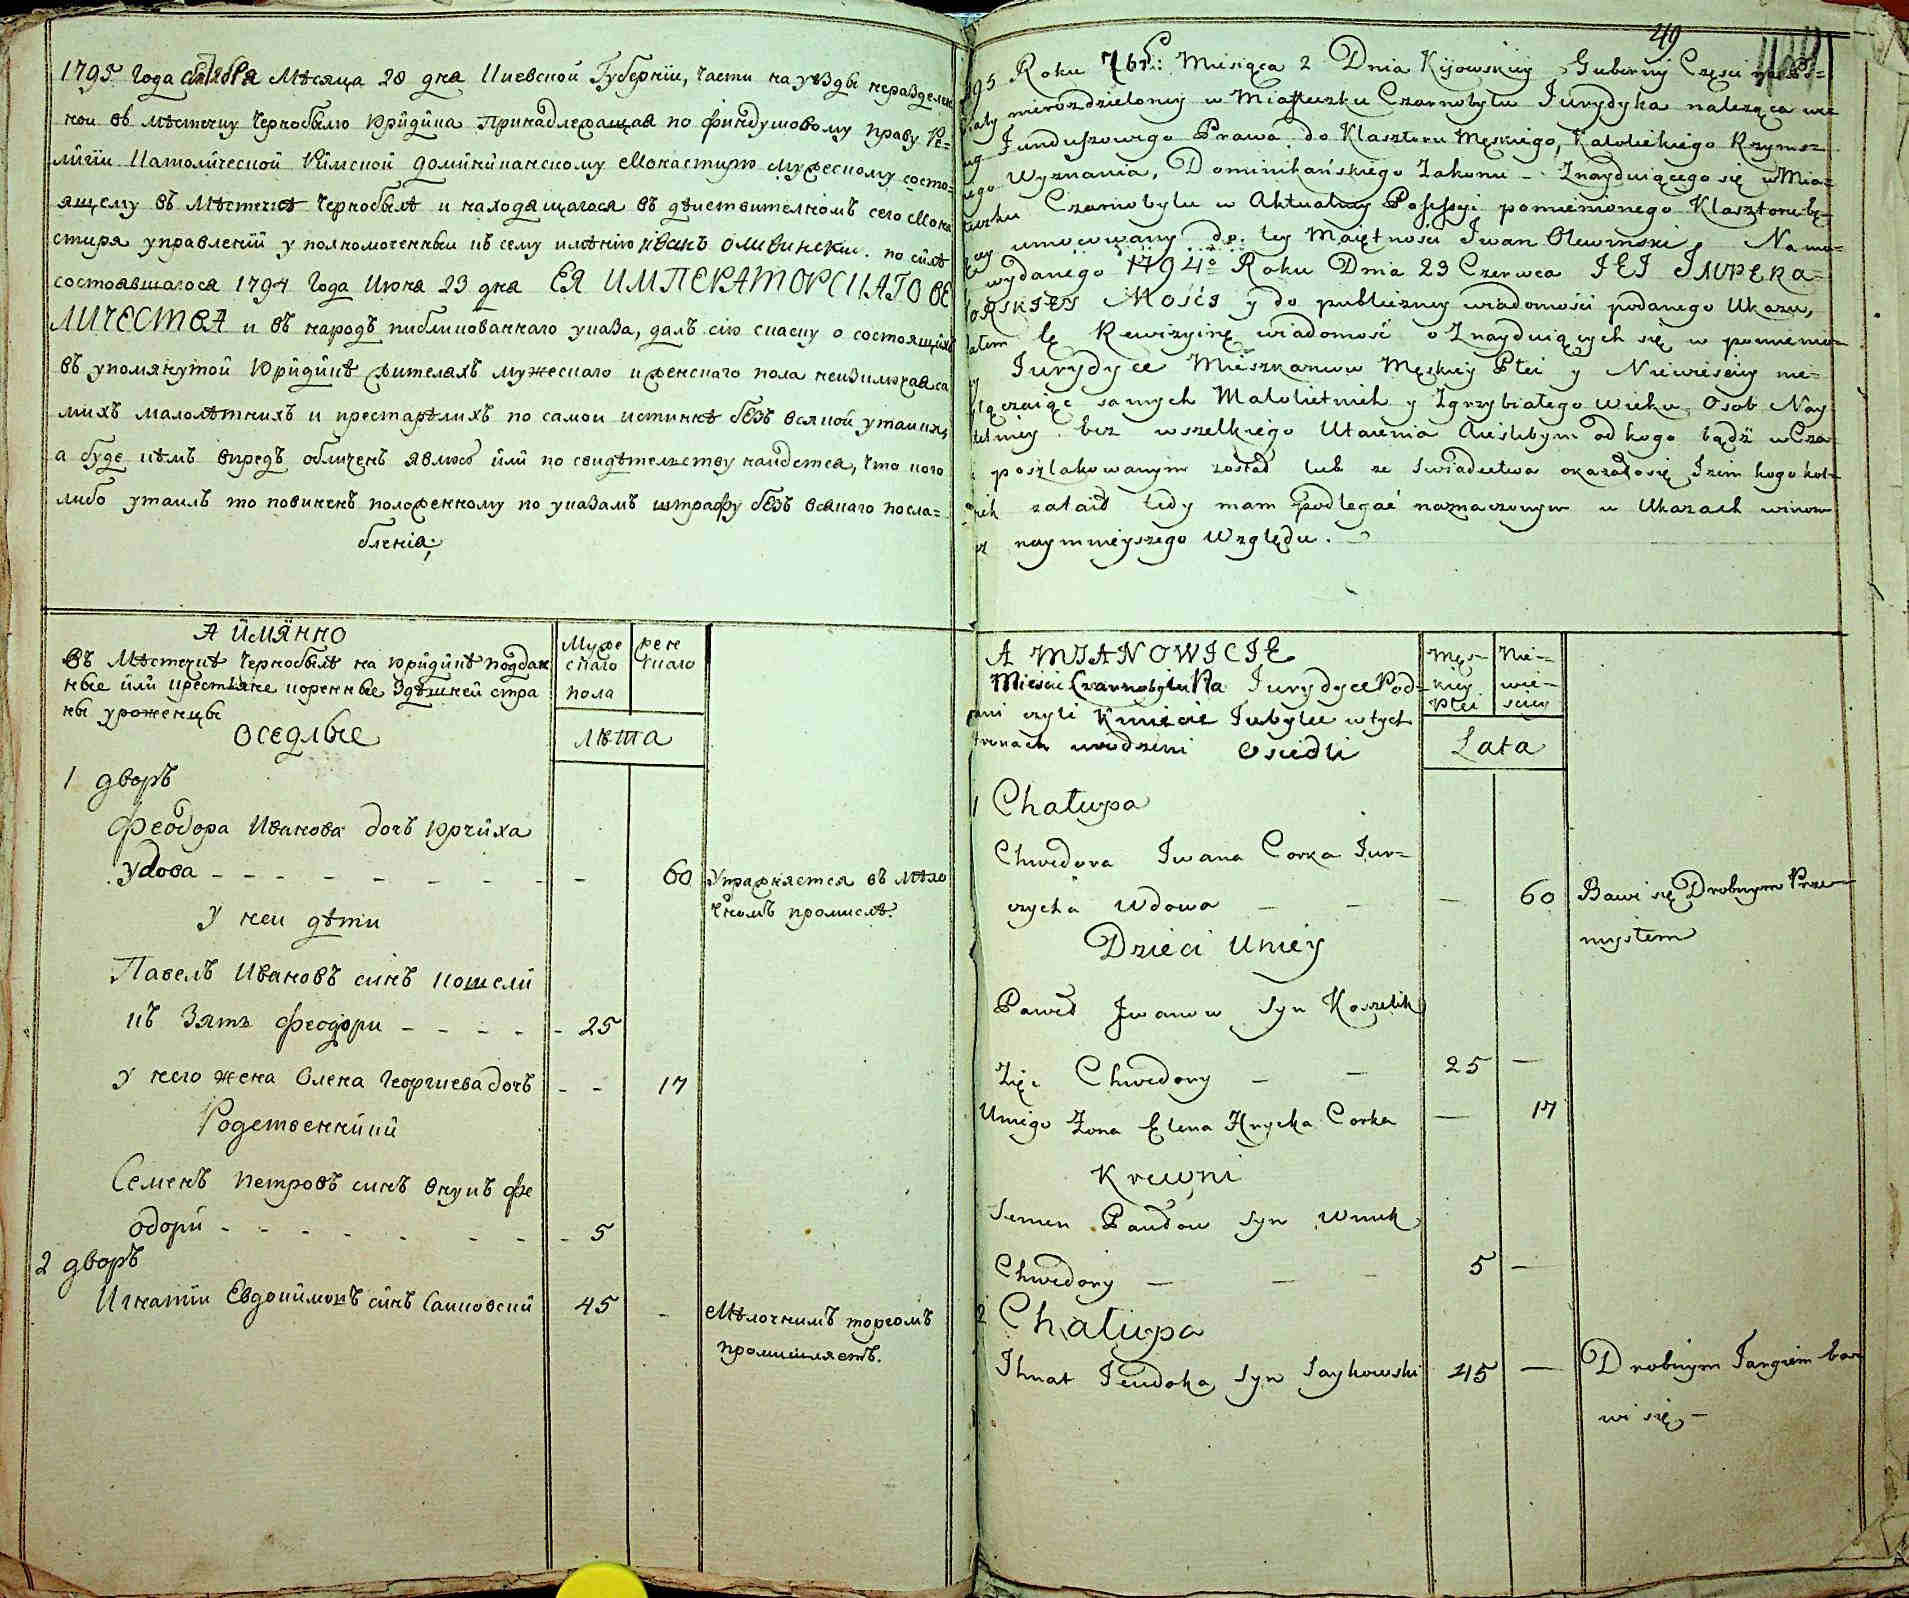 1795 Года Октября Мѣсяца 28 дня Киевской Губернїи, части на уѣзды нераздѣлен
ной въ мѣстечку Чернобылю Юридика Принадлежащая по фундушовому праву Ре=
лигїи Католической Римской доминиканскому Монастирю мужескому состо=
ящему въ Мѣстечкѣ Чернобылѣ и находящагося въ дѣиствителномъ сего Мона
стиря управленїи уполномоченный къ сему имѣнїю Иванъ Оливинский. по силѣ
состоявшагося 1794 Года Июня 23 дня ЕЯ ИМПЕРАТОРСКАГО ВЕ
ЛИЧЕСТВА и въ народъ публикованнаго указа, далъ сїю скаску о состоящихъ
въ упомянутой Юридикѣ жителяхъ мужескаго и женскаго пола неизключая са
михъ малолѣтнихъ и престарѣлихъ по самои истиннѣ безъ всякой утайки,
а буде кѣмъ впредь обличенъ явлюсь или по свидѣтелству найдется, что кого
либо утаилъ то повиненъ положенному по указамъ штрафу безъ всякаго посла=
бленїя;
А ИМЯННО
Въ Мѣстечкѣ Чернобылѣ на юридикѣ поддан
ные или крестьяне коренные здѣшней стра
ны уроженцы
Оседлые
Муже
скаго
пола
жен
скаго
Лѣта
1 дворъ
Феодора Иванова дочъ Юрчиха
удова - - - - - - - - 60 Упражняется въ мѣло
чномъ промислѣ.
У неи дѣти
Павелъ Ивановъ синъ Кошели
къ Зять Феодори - - - - - 25
У него жена Олена Георгиева дочъ - - 17
Родственники
Семенъ Петровъ синъ внукъ Фе
одори - - - - - - - - 5
2 дворъ
Игнатий Евдокимовъ синъ Саиковский 45 - Мѣлочнимъ торгомъ
промишляетъ.
49
95 Roku Miesiąca 2 Dnia Kijowskiey Guberny Części
nierozdzieloney w Miasteczku Czarnobylu Jurydyka należąca we
Funduszowego Prawa do Klasztoru Męskiego, Katolickiego Rzyms=
Wyznania, Dominikańskiego Zakonu - Znayduiącego się w Mia=
Czarnobylu w Aktualney Possessyi pomienionego Klasztoru
umocowany do tey Maiętności Iwan Olewinski Na mo=
wydanego 1794o Roku Dnia 23 Czerwca JEJ IMPERA=
TORSKIEY Mości y do publiczney wiadomości podanego Ukazu,
tę Rewizyiną wiadomość o Znayduiących się w pomienio=
Jurydyce Mieszkancow Męskiey Płci y Niewiesciey nie=
samych Małoletnich y Zgrzybiałego wieku Osob Nay
bez wszelkiego Utaienia Jeślibym od kogo bądź w Cza
poszlakowanym został lub ze Swiadectwa okazało się Iżem kogo kol=
zataił tedy mam podlegać naznaczonym w Ukazach winom
naymnieyszego Względu. -
A MIANOWICIE
Miescie Czarnobylu Na Jurydyce Pod=
ani czyli Kmiecie Tubylce w tych
stronach urodzeni Osiedli
Męs=
kiey
Płci
Nie=
wie=
sciey
Lata
1 Chałupa
Chwedora Iwana Corka Jur=
czycha Wdowa - - - 60 Bawi się Drobnym Prze=
mysłem
Dzieci Uniey
Paweł Iwanow Syn Koszelik
Zięć Chwedory - - 25 -
Uniego Zona Elena Hrycka Corka - 17
Krewni
Semen Pawłow Syn Wnuk
Chwedory - - - 5 -
2 Chałupa
Ihnat Jewdoka Syn Saykowski 45 - Drobnym Targiem ba
wi się -